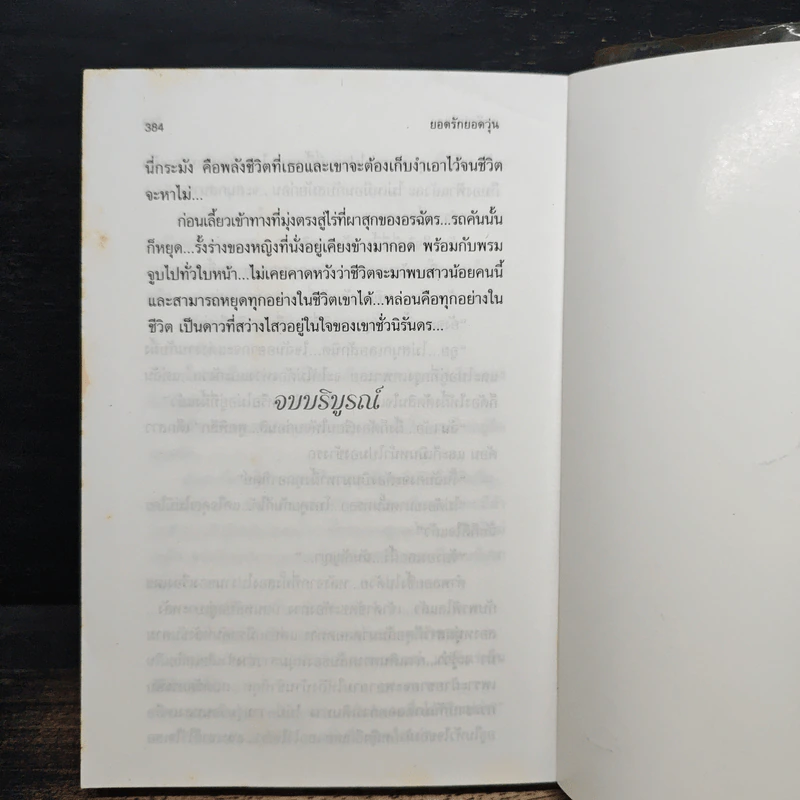 384 ยอดรักยอดวุ่น
นี่กระมัง คือพลังชีวิตที่เธอและเขาจะต้องเก็บงำเอาไว้จนชีวิต
จะหาไม่...
ก่อนเลี้ยวเข้าทางที่มุ่งตรงสู่ไร่ที่ผาสุกของอรฉัตร...รถคันนั้น
ก็หยุด...รั้งร่างของหญิงที่นั่งอยู่เคียงข้างมากอด พร้อมกับพรม
จูบไปทั่วใบหน้า...ไม่เคยคาดหวังว่าชีวิตจะมาพบสาวน้อยคนนี้
และสามารถหยุดทุกอย่างในชีวิตเขาได้...หล่อนคือทุกอย่างใน
ชีวิต เป็นดาวที่สว่างไสวอยู่ในใจของเขาชั่วนิรันดร...
จบบริบูรณ์